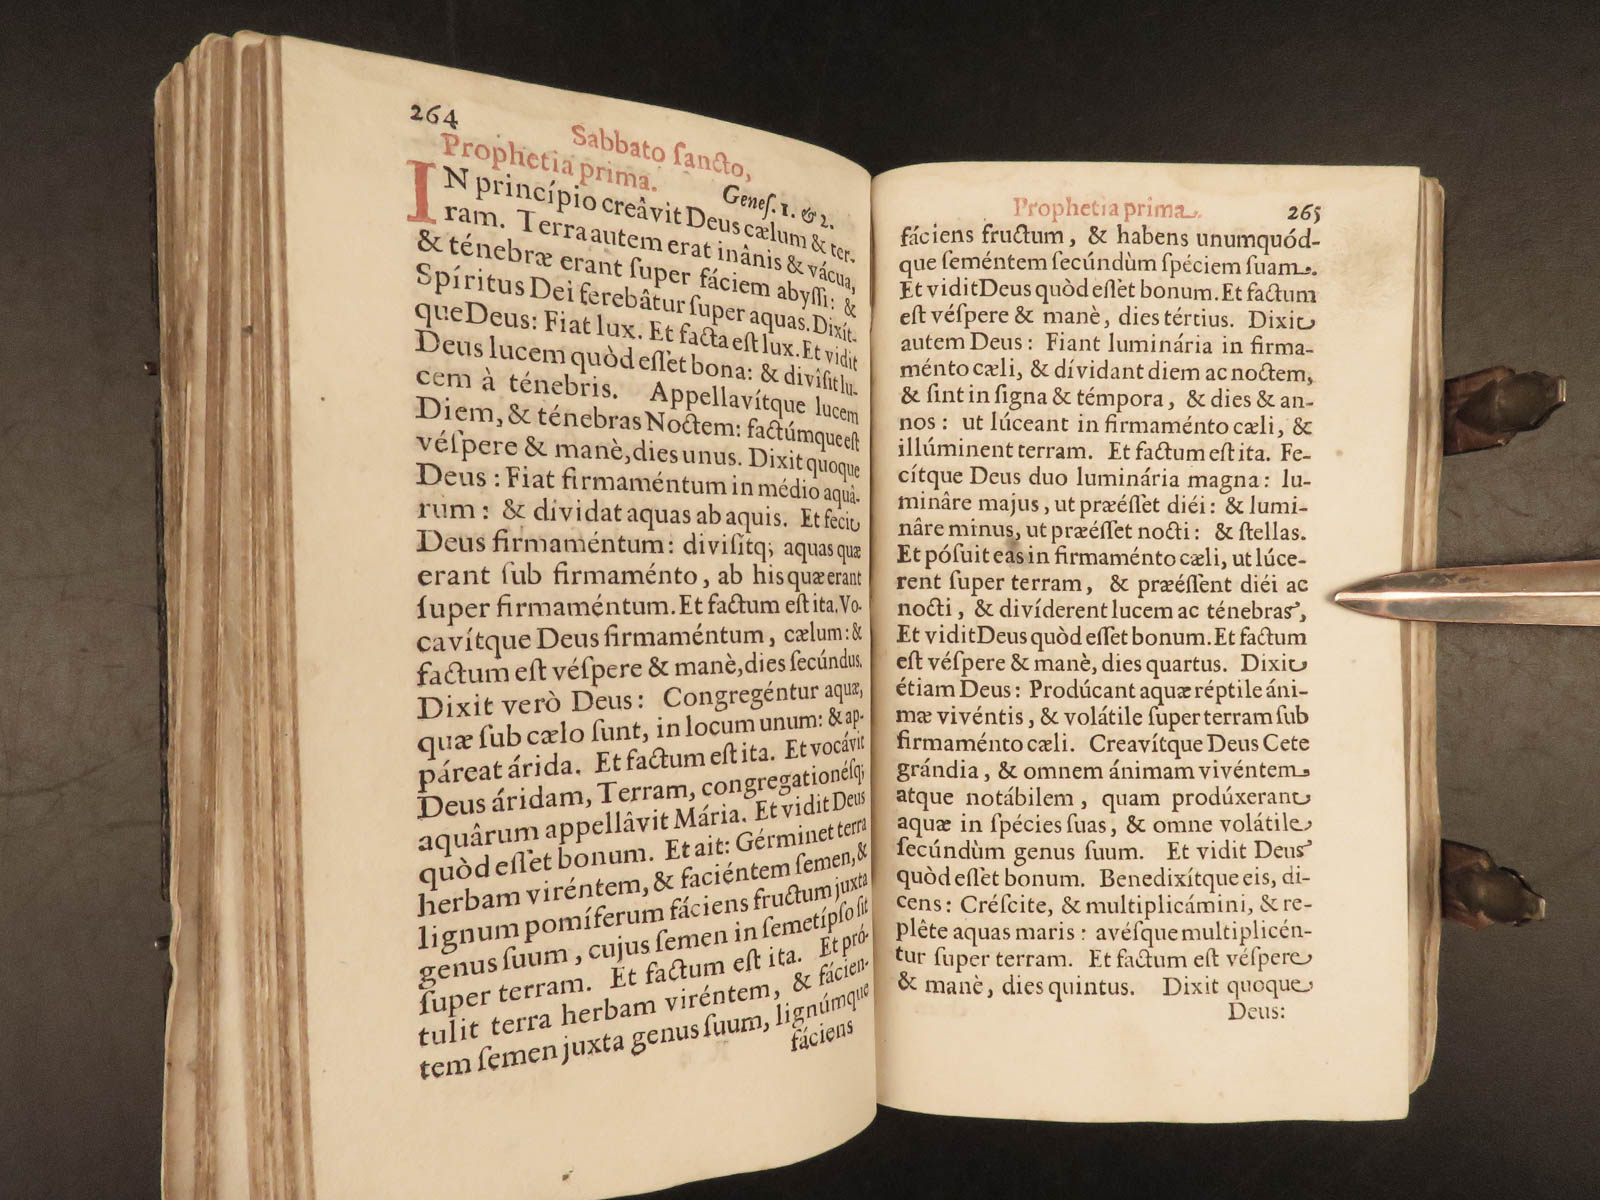 264
Sabbato ſancto,
Prophetia prima.
Geneſ. 1. & 2.
IN princípio creâvit Deus cælum & ter-
ram. Terra autem erat inânis & vácua,
& ténebræ erant ſuper fáciem abyſſi: &
Spíritus Dei ferebâtur ſuper aquas. Dixít-
que Deus: Fiat lux. Et facta eſt lux. Et vidit
Deus lucem quòd eſſet bona: & divîſit lu-
cem à ténebris. Appellavítque lucem
Diem, & ténebras Noctem: factúmque eſt
véſpere & manè, dies unus. Dixit quoque
Deus: Fiat firmaméntum in médio aquâ-
rum: & dividat aquas ab aquis. Et fecit
Deus firmaméntum: diviſítq; aquas quæ
erant ſub firmaménto, ab his quæ erant
ſuper firmaméntum. Et factum eſt ita. Vo-
cavítque Deus firmaméntum, cælum: &
factum eſt véſpere & manè, dies ſecúndus.
Dixit verò Deus: Congregéntur aquæ,
quæ ſub cælo ſunt, in locum unum: & ap-
páreat árida. Et factum eſt ita. Et vocávit
Deus áridam, Terram, congregationéſq;
aquârum appellâvit Mária. Et vidit Deus
quòd eſſet bonum. Et ait: Gérminet terra
herbam viréntem, & faciéntem ſemen, &
lignum pomíferum fáciens fructum juxta
genus ſuum, cujus ſemen in ſemetípſo ſit
ſuper terram. Et factum eſt ita. Et pró-
tulit terra herbam viréntem, & fácien-
tem ſemen juxta genus ſuum, lignúmque
fáciens
Prophetia prima.
265
fáciens fructum, & habens unumquód-
que ſeméntem ſecúndùm ſpéciem ſuam.
Et vidit Deus quòd eſſet bonum. Et factum
eſt véſpere & manè, dies tértius. Dixit
autem Deus: Fiant luminária in firma-
ménto cæli, & dívidant diem ac noctem,
& ſint in ſigna & témpora, & dies & an-
nos: ut lúceant in firmaménto cæli, &
illúminent terram. Et factum eſt ita. Fe-
cítque Deus duo luminária magna: lu-
minâre majus, ut præéſſet diéi: & lumi-
nâre minus, ut præéſſet nocti: & ſtellas.
Et póſuit eas in firmaménto cæli, ut lúce-
rent ſuper terram, & præéſſent diéi ac
nocti, & divíderent lucem ac ténebras,
Et vidit Deus quòd eſſet bonum. Et factum
eſt véſpere & manè, dies quartus. Dixit
étiam Deus: Prodúcant aquæ réptile áni-
mæ vivéntis, & volátile ſuper terram ſub
firmaménto cæli. Creavítque Deus Cete
grándia, & omnem ánimam vivéntem
atque notábilem, quam prodúxerant
aquæ in ſpécies ſuas, & omne volátile
ſecúndùm genus ſuum. Et vidit Deus
quòd eſſet bonum. Benedixítque eis, di-
cens: Créſcite, & multiplicámini, & re-
plête aquas maris: avéſque multiplicén-
tur ſuper terram. Et factum eſt véſpere
& manè, dies quintus. Dixit quoque
Deus: